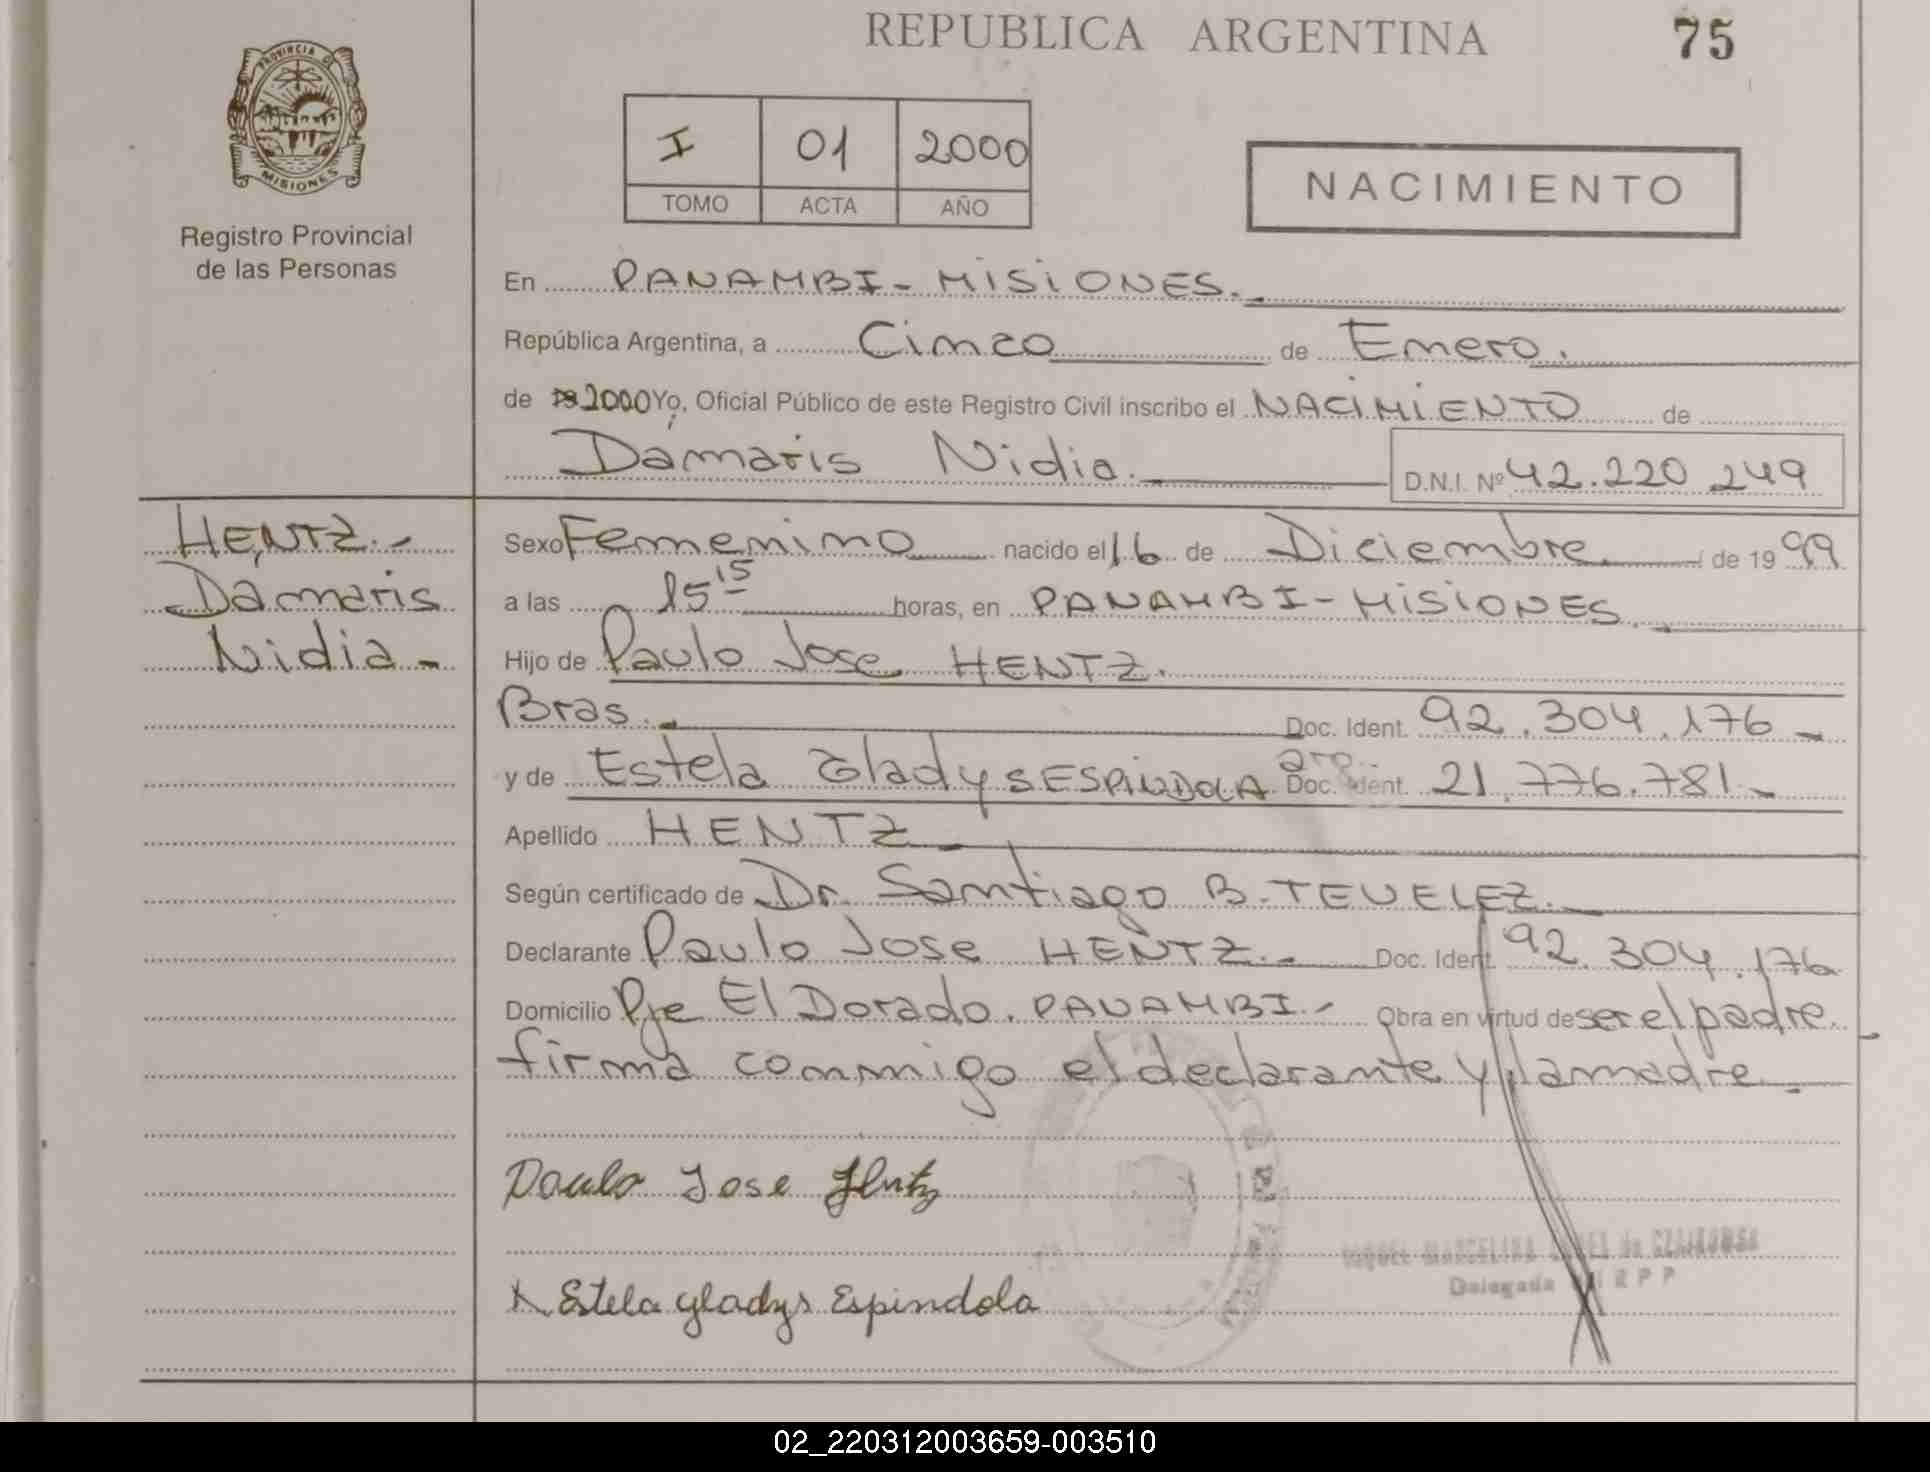 REPUBLICA ARGENTINA 75
PROVINCIA DE
MISIONES
Registro Provincial
de las Personas
I 01 2000
TOMO ACTA AÑO
NACIMIENTO
En PANAMBI - MISIONES.
República Argentina, a Cinco de Enero.
de 19 2000 Yo, Oficial Público de este Registro Civil inscribo el NACIMIENTO de
Damaris Nidia. D.N.I. Nº 42.220 249
HENTZ.-
Damaris
Nidia-
Sexo Femenino nacido el 16 de Diciembre. de 19 99
a las 15 15 horas, en PANAMBI - MISIONES.
Hijo de Paulo Jose HENTZ.
Bras.- Doc. Ident. 92.304.176-
arg.
y de Estela Gladys ESPINDOLA Doc. Ident. 21.776.781.-
Apellido HENTZ-
Según certificado de Dr. Santiago B. TEVELEZ.-
Declarante Paulo Jose HENTZ.- Doc. Ident. 92.304.176
Domicilio Pje El Dorado. PANAMBI.- Obra en virtud de ser el padre.-
firma conmigo el declarante y la madre.-
Paulo Jose Hentz
x Estela Gladys Espindola
MARCELINA de
Delegada
02_220312003659-003510